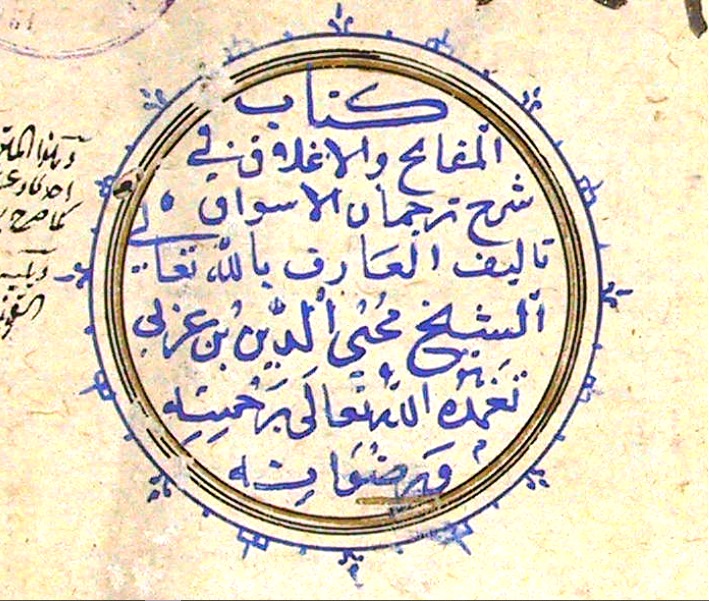 كتاب
المفاتح والاغلاق في
شرح ترجمان الاسواق
تاليف العارف بالله تعالى
الشيخ محيي الدين بن عربي
تغمده الله تعالى برحمته
ورضوانه